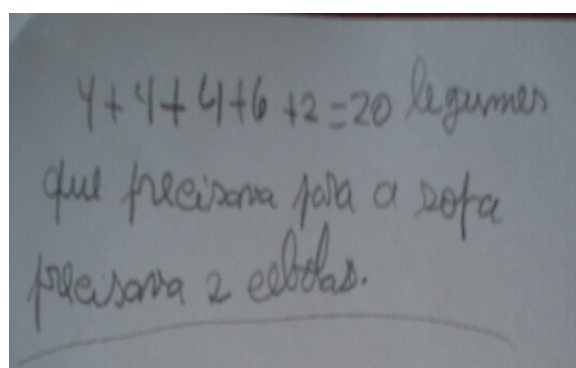 4+4+4+6+2=20 legumes
que precisava para a sopa
precisava 2 cebolas.